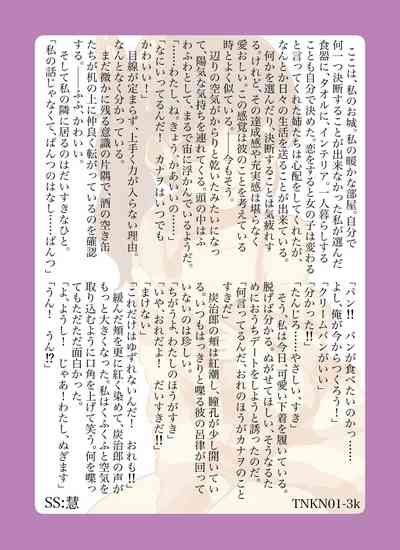 ここは、私のお城。私の暖かな部屋。自分で
何一つ決断することが出来なかった私が選んだ
食器に、タオルに、インテリア。一人暮らしする
ことも自分で決めた。恋をすると女の子は変わる
と言ってくれた姉たちは心配をしてくれたが、
なんとか日々の生活を送ることが出来ている。
何かを選んだり決断することは気疲れす
る。けれど、その達成感や充実感は堪らなく
愛おしい。この感覚は彼のことを考えている
時とよく似ている。――今もそう。
辺りの空気がからりと乾いたみたいになっ
て、陽気な気持ちを連れてくる。頭の中はふ
わふわとして、まるで宙に浮かんでいるようだ。
「……わたし、ね。きょう、かあいいの……」
「なにいってるんだ！　カナヲはいつでも
かわいい！」
目線が定まらず、上手く力が入らない理由。
なんとなく分かっている。
まだ微かに残る意識の片隅で、酒の空き缶
たちが机の上に仲良く転がっているのを確認
する。――ふふ、かわいい。
そして私の隣に居るのはだいすきなひと。
「私の話じゃなくて、ぱんつのはなし……ぱんつ」
「パン!!　パンが食べたいのかっ……
よし、俺が今からつくろう！」
「クリームパンがいい」
「分かった!!」
「たんじろ……やさしい、すき」
そう、私は今日、可愛い下着を履いている。
脱げば分かる。ぬがせてほしい、そうなるた
めにおうちデートをしようと誘ったのだ。
「何言ってるんだ、おれのほうがカナヲのこと
すきだ」
炭治郎の頬は紅潮し、瞳孔が少し開いてい
る。いつもはっきりと喋る彼の呂律が回って
いないのは珍しい。
「ちがうよ、わたしのほうがすき」
「いや、おれだよ！　だいすきだ!!」
「まけない」
「これだけはゆずれないんだ！　おれも!!」
緩んだ頬を更に紅く染めて、炭治郎の声が
もっと大きくなった。私はくふくふと空気を
取り込むように口角を上げて笑う。何を喋っ
てもただただ面白かった。
「よ、ようし！　じゃあ！わたし、ぬぎます」
「うん！　うん!?」
SS:慧
TNKN01-3k